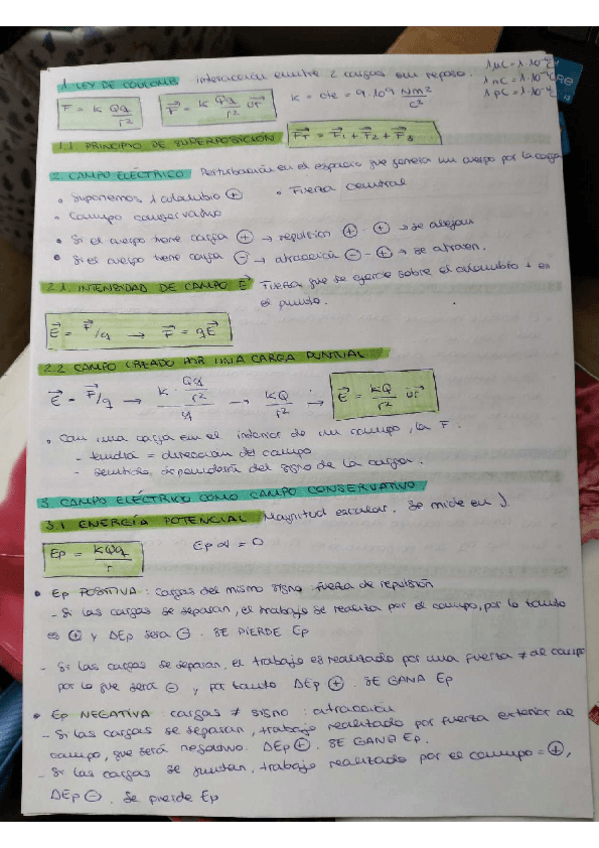 1 LEY DE COULOMB interacción entre 2 cargas en reposo.
1 μC = 1·10
1 nC = 1·10
1 pC = 1·10
F = K Qq/r² F⃗ = K Qq/r² ur⃗ K = cte = 9·10⁹ Nm²/C²
1.1 PRINCIPIO DE SUPERPOSICIÓN F⃗T = F⃗1 + F⃗2 + F⃗3
2 CAMPO ELÉCTRICO Perturbación en el espacio que genera un cuerpo por la carga
• Suponemos 1 cdalubio ⊕ • Fuerza central
• Campo conservativo
• Si el cuerpo tiene carga ⊕ → repulsión ⊕ - ⊕ → se alejan
• Si el cuerpo tiene carga ⊖ → atracción ⊖ - ⊕ → se atraen.
2.1. INTENSIDAD DE CAMPO E⃗ Fuerza que se ejerce sobre el + en
el punto.
E⃗ = F⃗/q → F⃗ = qE⃗
2.2 CAMPO CREADO POR UNA CARGA PUNTUAL
E⃗ = F⃗/q → K · Qq/r² / q → KQ/r² → E⃗ = KQ/r² ur⃗
• Con una carga en el interior de un campo, la F.
- tendrá = dirección del campo
- sentido, dependerá del signo de la carga.
3. CAMPO ELÉCTRICO COMO CAMPO CONSERVATIVO
3.1 ENERGÍA POTENCIAL Magnitud escalar. Se mide en J.
Ep = KQq/r Ep ∞ = 0
• Ep POSITIVA : cargas del mismo signo : fuerza de repulsión
- Si las cargas se separan, el trabajo se realiza por el campo, por lo tanto
es ⊕ y ΔEp será ⊖. SE PIERDE Ep
- Si las cargas se separan, el trabajo es realizado por una fuerza ≠ al campo
por lo que será ⊖ y por tanto ΔEp ⊕. SE GANA Ep
• Ep NEGATIVA : cargas ≠ signo : atracción
- Si las cargas se separan, trabajo realizado por fuerza exterior al
campo, que será negativo. ΔEp ⊕. SE GANA Ep.
- Si las cargas se juntan, trabajo realizado por el campo = ⊕,
ΔEp ⊖. Se pierde Ep